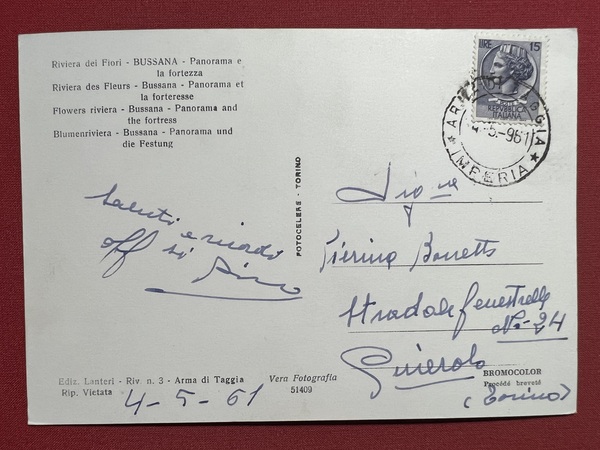 Riviera dei Fiori - BUSSANA - Panorama e
la fortezza
Riviera des Fleurs - Bussana - Panorama et
la forteresse
Flowers riviera - Bussana - Panorama and
the fortress
Blumenriviera - Bussana - Panorama und
die Festung
Saluti e ricordi
FOTOCELERE - TORINO
LIRE 15
REPUBBLICA
ITALIANA
4-5-961
IMPERIA
Pierina
Stradale Fenestrelle
No 24
Pinerolo
(Torino)
Ediz. Lanteri - Riv. n. 3 - Arma di Taggia
Rip. Vietata
4-5-61
Vera Fotografia
51409
BROMOCOLOR
Procédé breveté